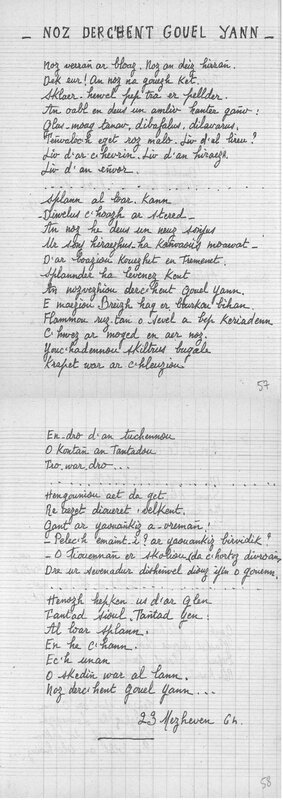 _ NOZ DERC'HENT GOUEL YANN _
Noz verrañ ar bloaz. Noz an deiz hirrañ.
Dek eur! An noz na gouezh ket.
Sklaer. hevel pep tra er pellder.
An oabl en deus un amliv hanter gañv:
Glas-moag tanav, dibafalus, dilavarus.
Teñvaloc'h eget roz malo. Liv d'el lireu?
Liv d'ar c'hevrin. Liv d'an hiraezh.
Liv d'an eñvor.
Splann al loar. Kann
Divelus c'hoazh ar stered _
An noz he deus un neuz sonjus
Me soñj hiraezhus ha keñvaouiz moarvat _
D'ar boazioù kouezhet en Tremenet.
Splannder ha levenez kent
An nozvezhioù derc'hent Gouel Yann.
E maezioù Breizh hag er bourkoù bihan
Flammoù ruz-tan o sevel a bep keriadenn
C'hwez ar moged en aer noz.
Youc'hadennoù skiltrus bugale
Krapet war ar c'hleuzioù.
57
En-dro d'an tuchennoù
O kontañ an Tantadoù
Tro.war.dro...
Hengounioù aet da get.
Ne vezet dioueret selkent.
Gant ar yaouankiz a-vremañ!
_ Pelec'h emaint-i? ar yaouankiz birvidik?
_ O tiouennañ er skolioù (da c'hortoz divroañ,
Dre ur sevenadur dishenvel diouzh ijin o gouenn.
Henozh hepken us d'ar glen
Tantad sioul. Tantad yen:
Al loar splann.
En he c'hann.
Ec'h unan
O skediñ war al lann.
Noz derc'hent Gouel Yann...
23 Mezheven 64.
58